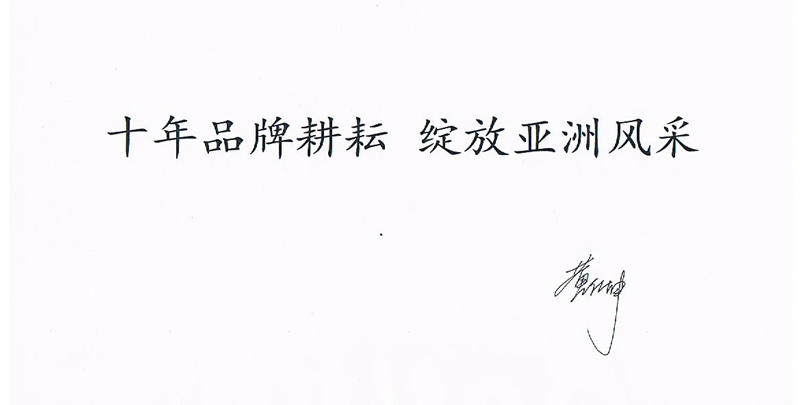 十年品牌耕耘 绽放亚洲风采